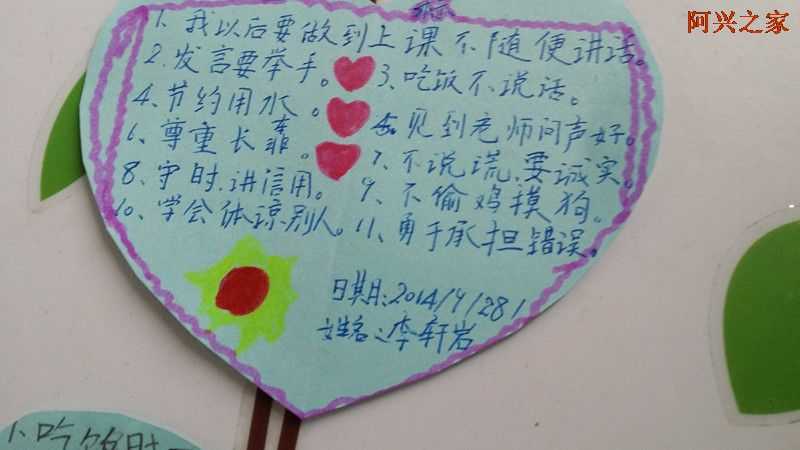 阿兴之家
1、我以后要做到上课不随便讲话。
2、发言要举手。 3、吃饭不说话。
4、节约用水。 5、见到老师问声好。
6、尊重长辈。 7、不说谎,要诚实。
8、守时,讲信用。 9、不偷鸡摸狗。
10、学会体谅别人。 11、勇于承担错误。
日期:2014/9/28/
姓名:李轩岩
1、吃饭时